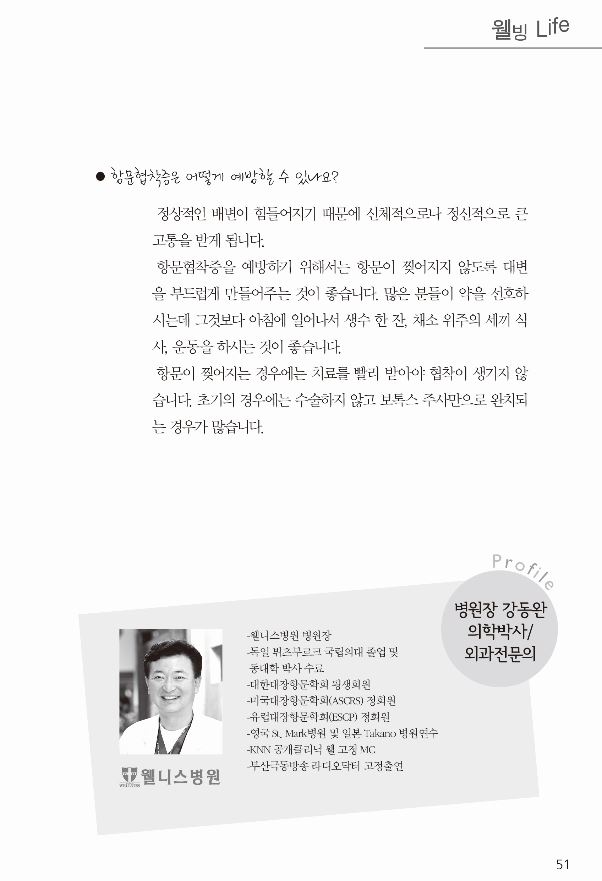 웰빙 Life
● 항문협착증은 어떻게 예방할 수 있나요?
정상적인 배변이 힘들어지기 때문에 신체적으로나 정신적으로 큰
고통을 받게 됩니다.
항문협착증을 예방하기 위해서는 항문이 찢어지지 않도록 대변
을 부드럽게 만들어주는 것이 좋습니다. 많은 분들이 약을 선호하
시는데 그것보다 아침에 일어나서 생수 한 잔, 채소 위주의 세끼 식
사, 운동을 하시는 것이 좋습니다.
항문이 찢어지는 경우에는 치료를 빨리 받아야 협착이 생기지 않
습니다. 초기의 경우에는 수술하지 않고 보톡스 주사만으로 완치되
는 경우가 많습니다.
Profile
병원장 강동완
의학박사/
외과전문의
-웰니스병원 병원장
-독일 뷔츠부르크 국립의대 졸업 및
동대학 박사 수료
-대한대장항문학회 평생회원
-미국대장항문학회(ASCRS) 정회원
-유럽대장항문학회(ESCP) 정회원
-영국 St. Mark병원 및 일본 Takano 병원연수
-KNN 공개클리닉 웰 고정 MC
-부산극동방송 라디오닥터 고정출연
WELLNESS 웰니스병원
51